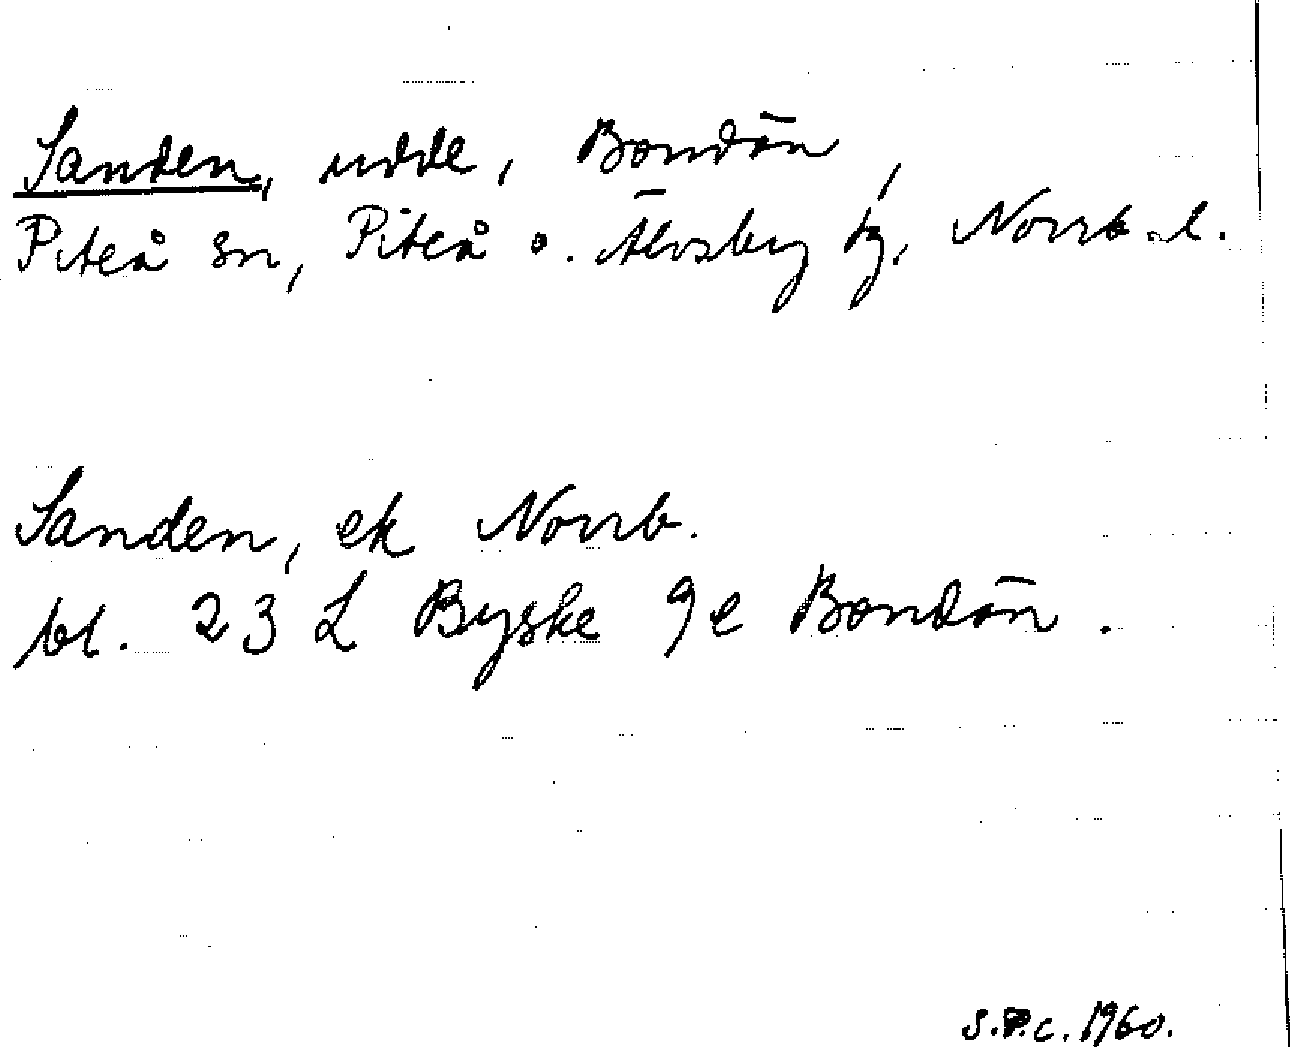 Sanden, udde, Bondön,
Piteå sn, Piteå o. Älvsby tg, Norrb. l.
Sanden, ek Norrb.
bl. 23 L Byske 9e Bondön.
S.P.C. 1960.